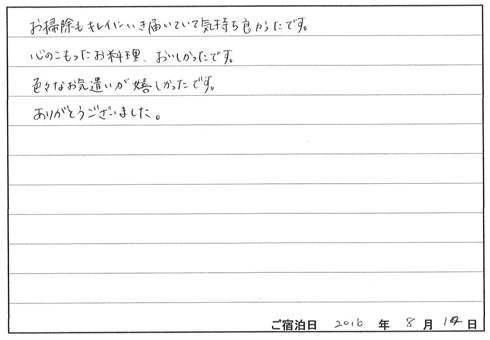 お掃除もキレイにいき届いていて気持ち良かったです。
心のこもったお料理、おいしかったです。
色々なお気遣いが嬉しかったです。
ありがとうございました。
ご宿泊日 2016 年 8 月 14 日